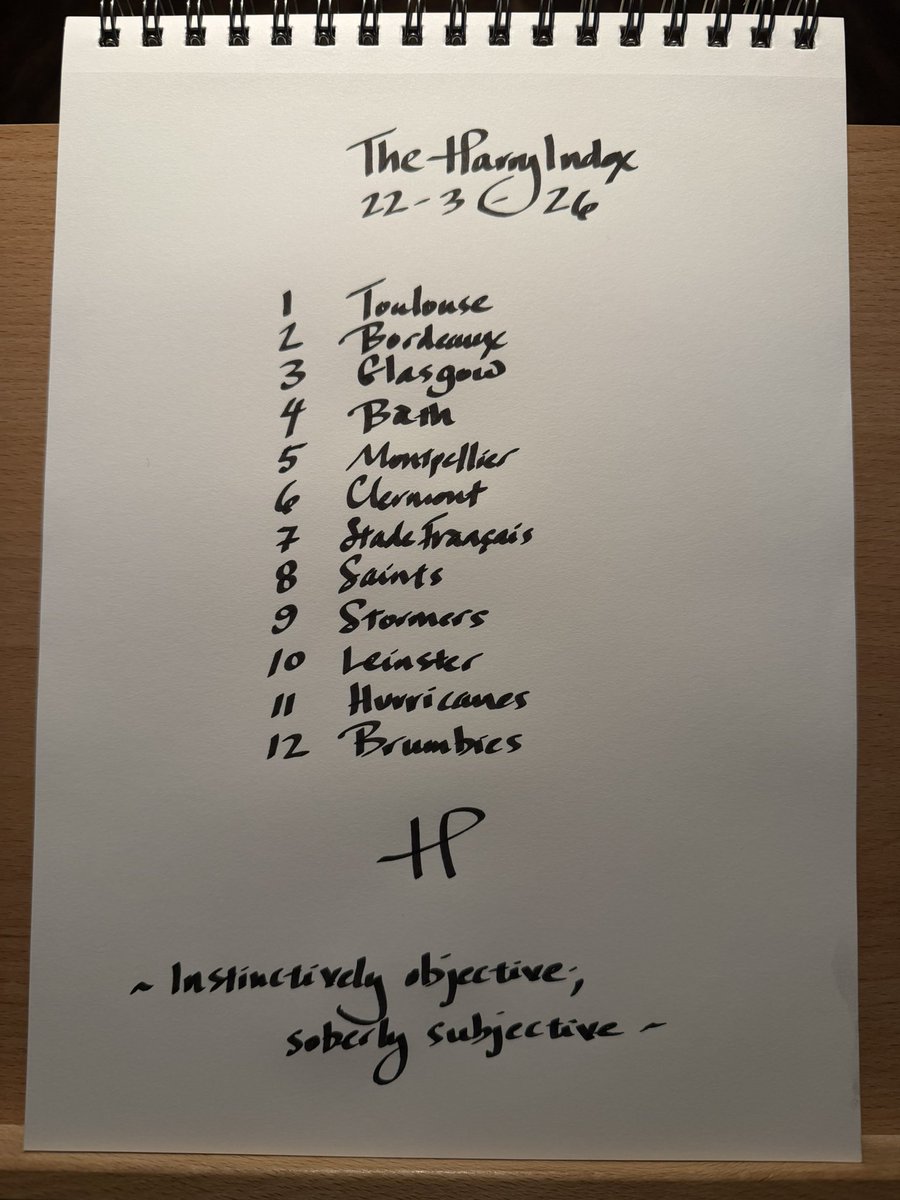 The Harry Index
22-3-26
1 Toulouse
2 Bordeaux
3 Glasgow
4 Bath
5 Montpellier
6 Clermont
7 Stade Français
8 Saints
9 Stormers
10 Leinster
11 Hurricanes
12 Brumbies
H
~ Instinctively objective;
soberly subjective ~